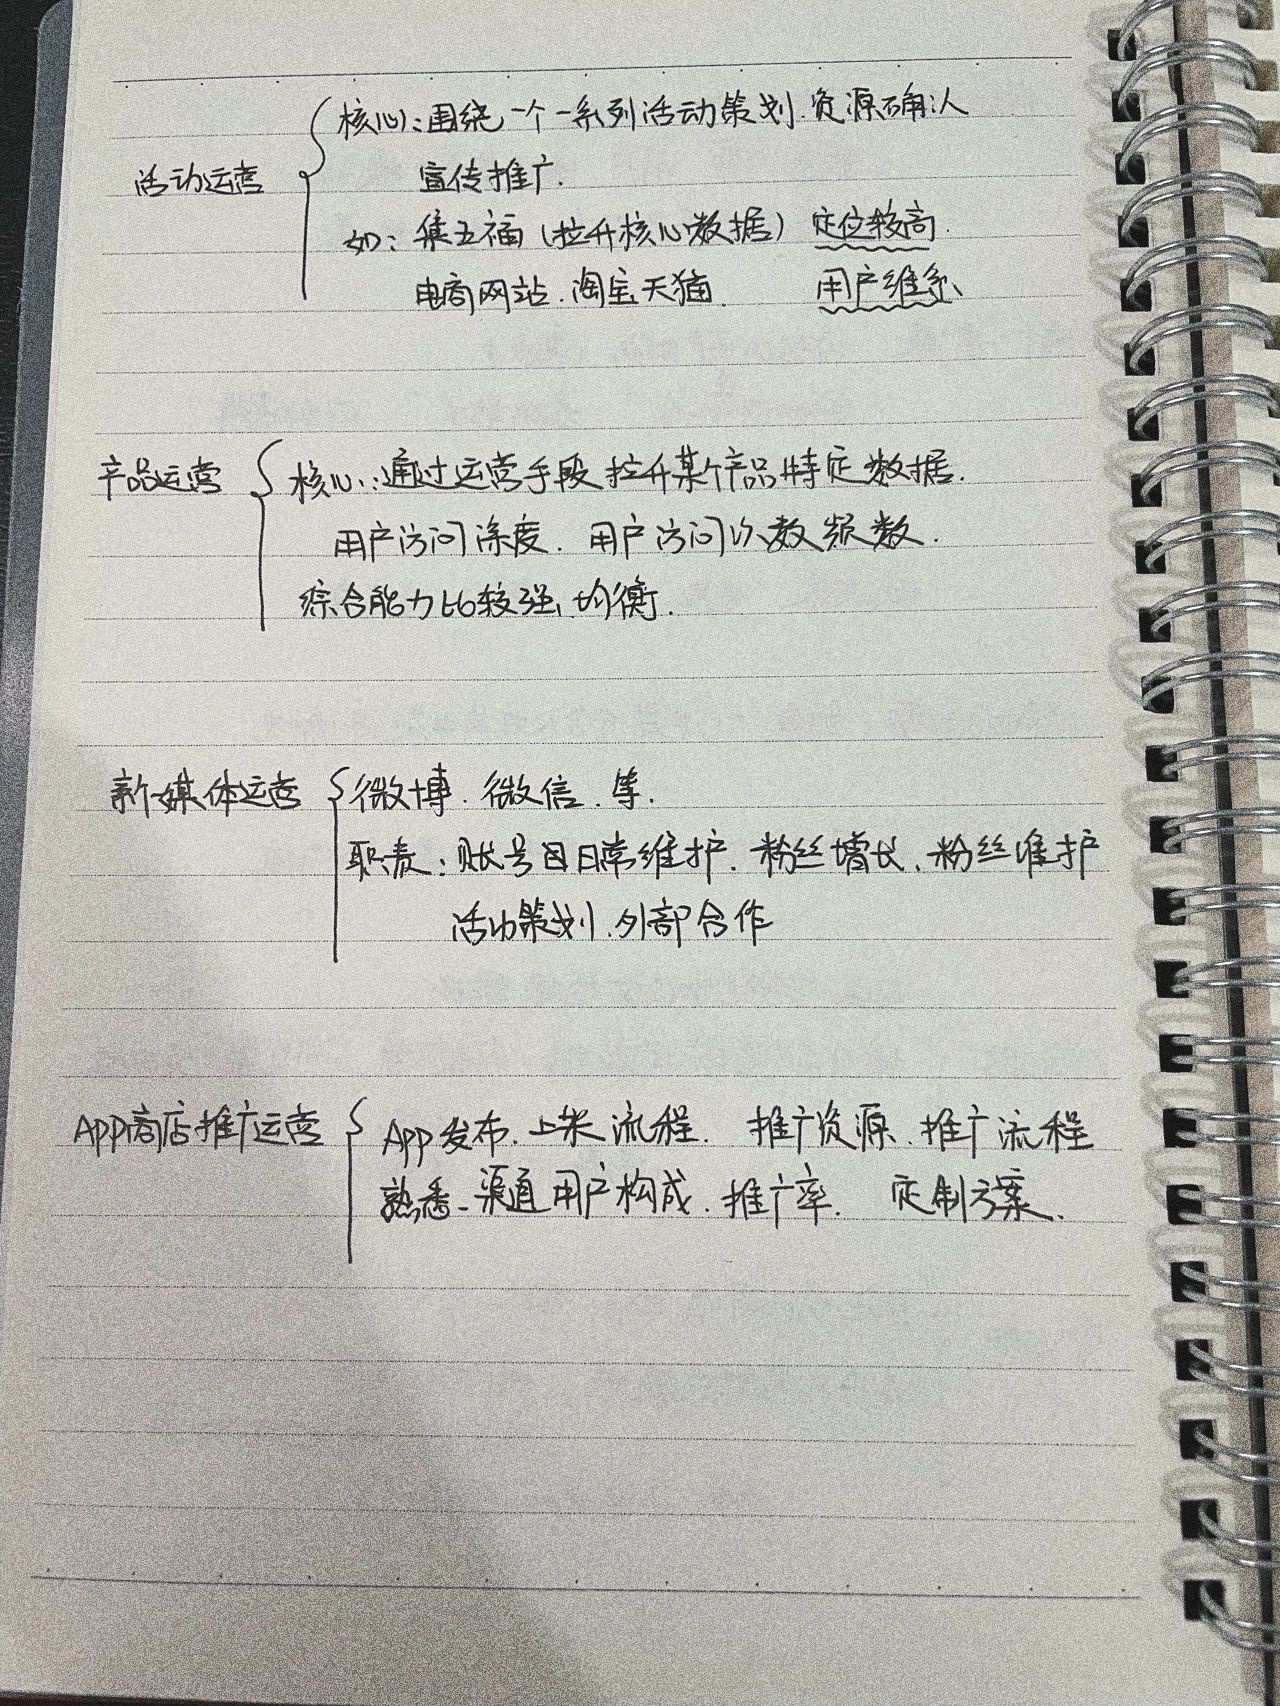 活动运营
核心:围绕一个一系列活动策划.资源确认
宣传推广.
如:集五福(拉升核心数据) 定位较高.
电商网站.淘宝天猫. 用户维系、
产品运营
核心:通过运营手段拉升某个产品特定数据.
用户访问深度. 用户访问次数频数.
综合能力比较强、均衡.
新媒体运营
微博.微信.等.
职责:账号日常维护.粉丝增长、粉丝维护
活动策划.外部合作
App商店推广运营
App发布.上架流程. 推广资源、推广流程
熟悉-渠道用户构成.推广率. 定制方案、